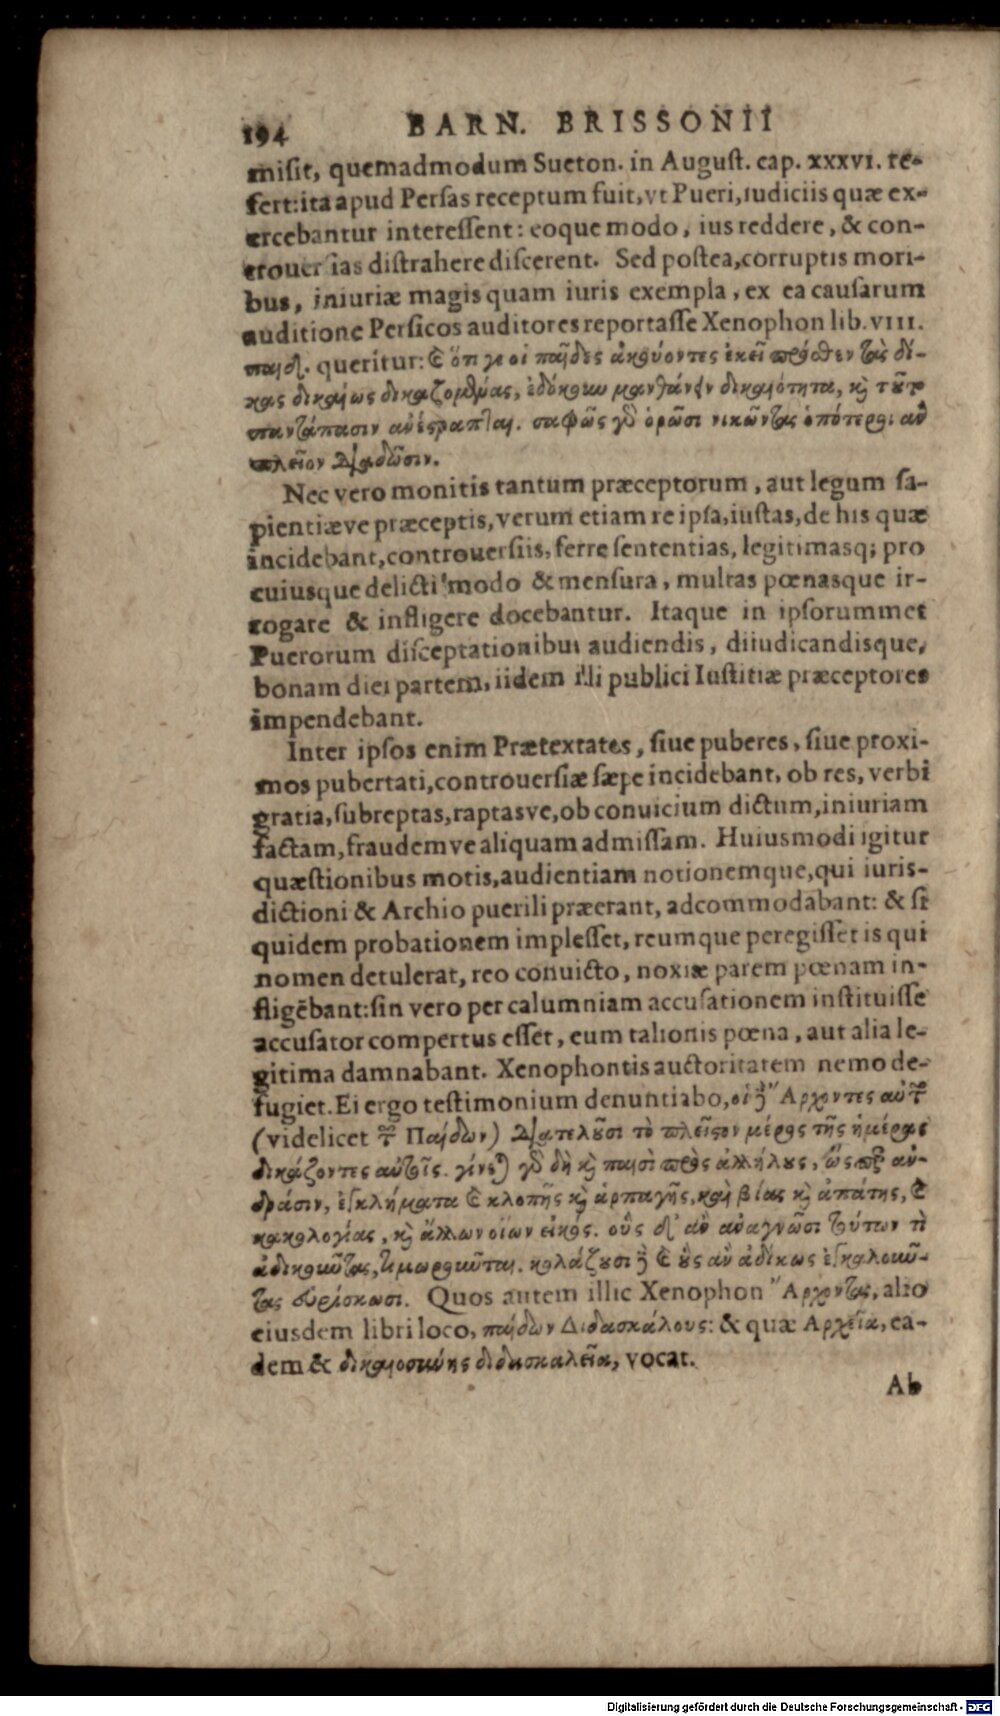 194 BARN. BRISSONII
misit, quemadmodum Sueton. in August. cap. XXXVI. re-
fert: ita apud Persas receptum fuit, vt Pueri, iudiciis quæ ex-
ercebantur interessent: eoque modo, ius reddere, & con-
trouersias distrahere discerent. Sed postea, corruptis mori-
bus, iniuriæ magis quam iuris exempla, ex ea causarum
auditione Persicos auditores reportasse Xenophon lib. VIII.
παιδ. queritur: καὶ ὅτι γε οἱ παῖδες ἀκούοντες ἐκεῖ πρόσθεν τὰς δί-
κας δικαίως δικαζομένας, ἐδόκουν μανθάνειν δικαιότητα, καὶ τοῦτο
παντάπασιν ἀνέστραπται. σαφῶς γὰρ ὁρῶσι νικῶντας ὁπότεροι ἂν
πλεῖον διαδῶσιν.
Nec vero monitis tantum præceptorum, aut legum sa-
pientiæve præceptis, verum etiam re ipsa, iustas, de his quæ
incidebant, controuersiis, ferre sententias, legitimasq; pro
cuiusque delicti modo & mensura, multas pœnasque ir-
rogare & infligere docebantur. Itaque in ipsorummet
Puerorum disceptationibus audiendis, diiudicandisque,
bonam diei partem, iidem illi publici Iustitiæ præceptores
impendebant.
Inter ipsos enim Prætextates, siue puberes, siue proxi-
mos pubertati, controuersiæ sæpe incidebant, ob res, verbi
gratia, subreptas, raptasve, ob conuicium dictum, iniuriam
factam, fraudemve aliquam admissam. Huiusmodi igitur
quæstionibus motis, audientiam notionemque, qui iuris-
dictioni & Archio puerili præerant, adcommodabant: & si
quidem probationem implesset, reumque peregisset is qui
nomen detulerat, reo conuicto, noxiæ parem pœnam in-
fligēbant: sin vero per calumniam accusationem instituisse
accusator compertus esset, eum talionis pœna, aut alia le-
gitima damnabant. Xenophontis auctoritatem nemo de-
fugiet. Ei ergo testimonium denuntiabo, οἱ δὲ Ἄρχοντες αὐτῶν
(videlicet τῶν Παίδων) διατελοῦσι τὸ πλεῖστον μέρος τῆς ἡμέρας
δικάζοντες αὐτοῖς. γίνεται γὰρ δὴ καὶ παισὶ πρὸς ἀλλήλους, ὥσπερ ἀν-
δράσιν, ἐγκλήματα καὶ κλοπῆς καὶ ἁρπαγῆς, καὶ βίας καὶ ἀπάτης, καὶ
κακολογίας, καὶ ἄλλων οἵων εἰκός. οὓς δ' ἂν ἀναγνῶσι τούτων τὶ
ἀδικοῦντας, τιμωροῦνται. κολάζουσι δὲ καὶ οὓς ἂν ἀδίκως ἐγκαλοῦν-
τας εὑρίσκωσι. Quos autem illic Xenophon Ἄρχοντας, alio
eiusdem libri loco, παίδων Διδασκάλους: & quæ Ἀρχεῖα, ea-
dem & δικαιοσύνης διδασκαλεῖα, vocat.
Ab
Digitalisierung gefördert durch die Deutsche Forschungsgemeinschaft - DFG